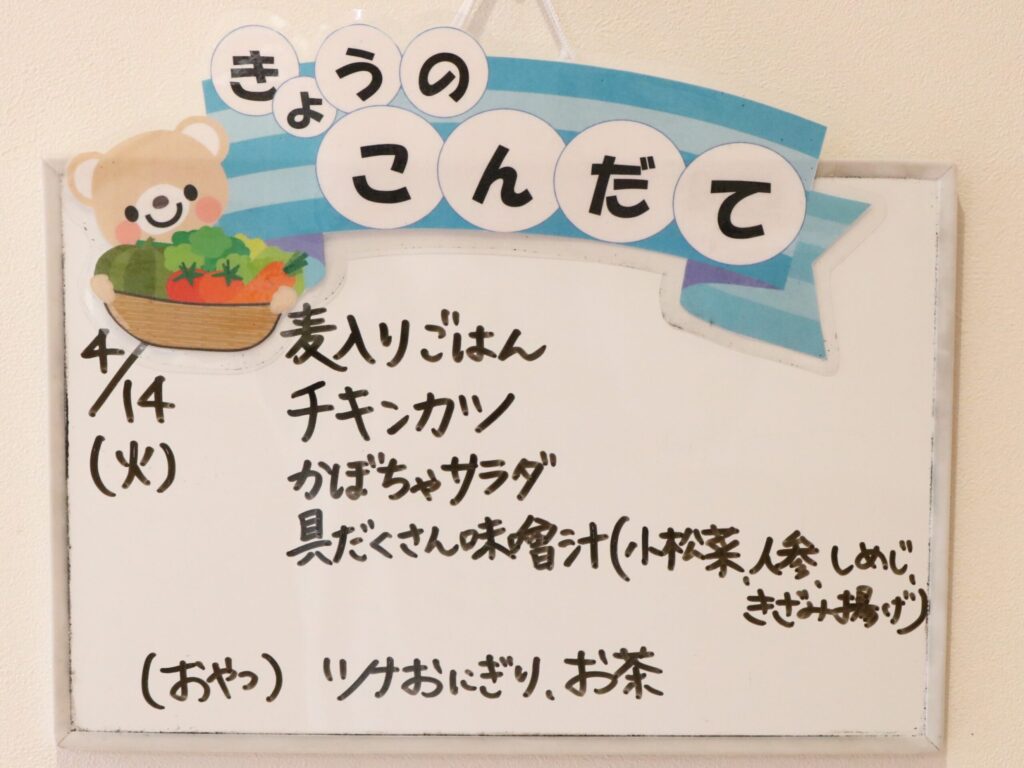 きょうの
こんだて
4/14
(火)
麦入りごはん
チキンカツ
かぼちゃサラダ
具だくさん味噌汁(小松菜、人参、しめじ、
きざみ揚げ)
(おやつ) ツナおにぎり、お茶